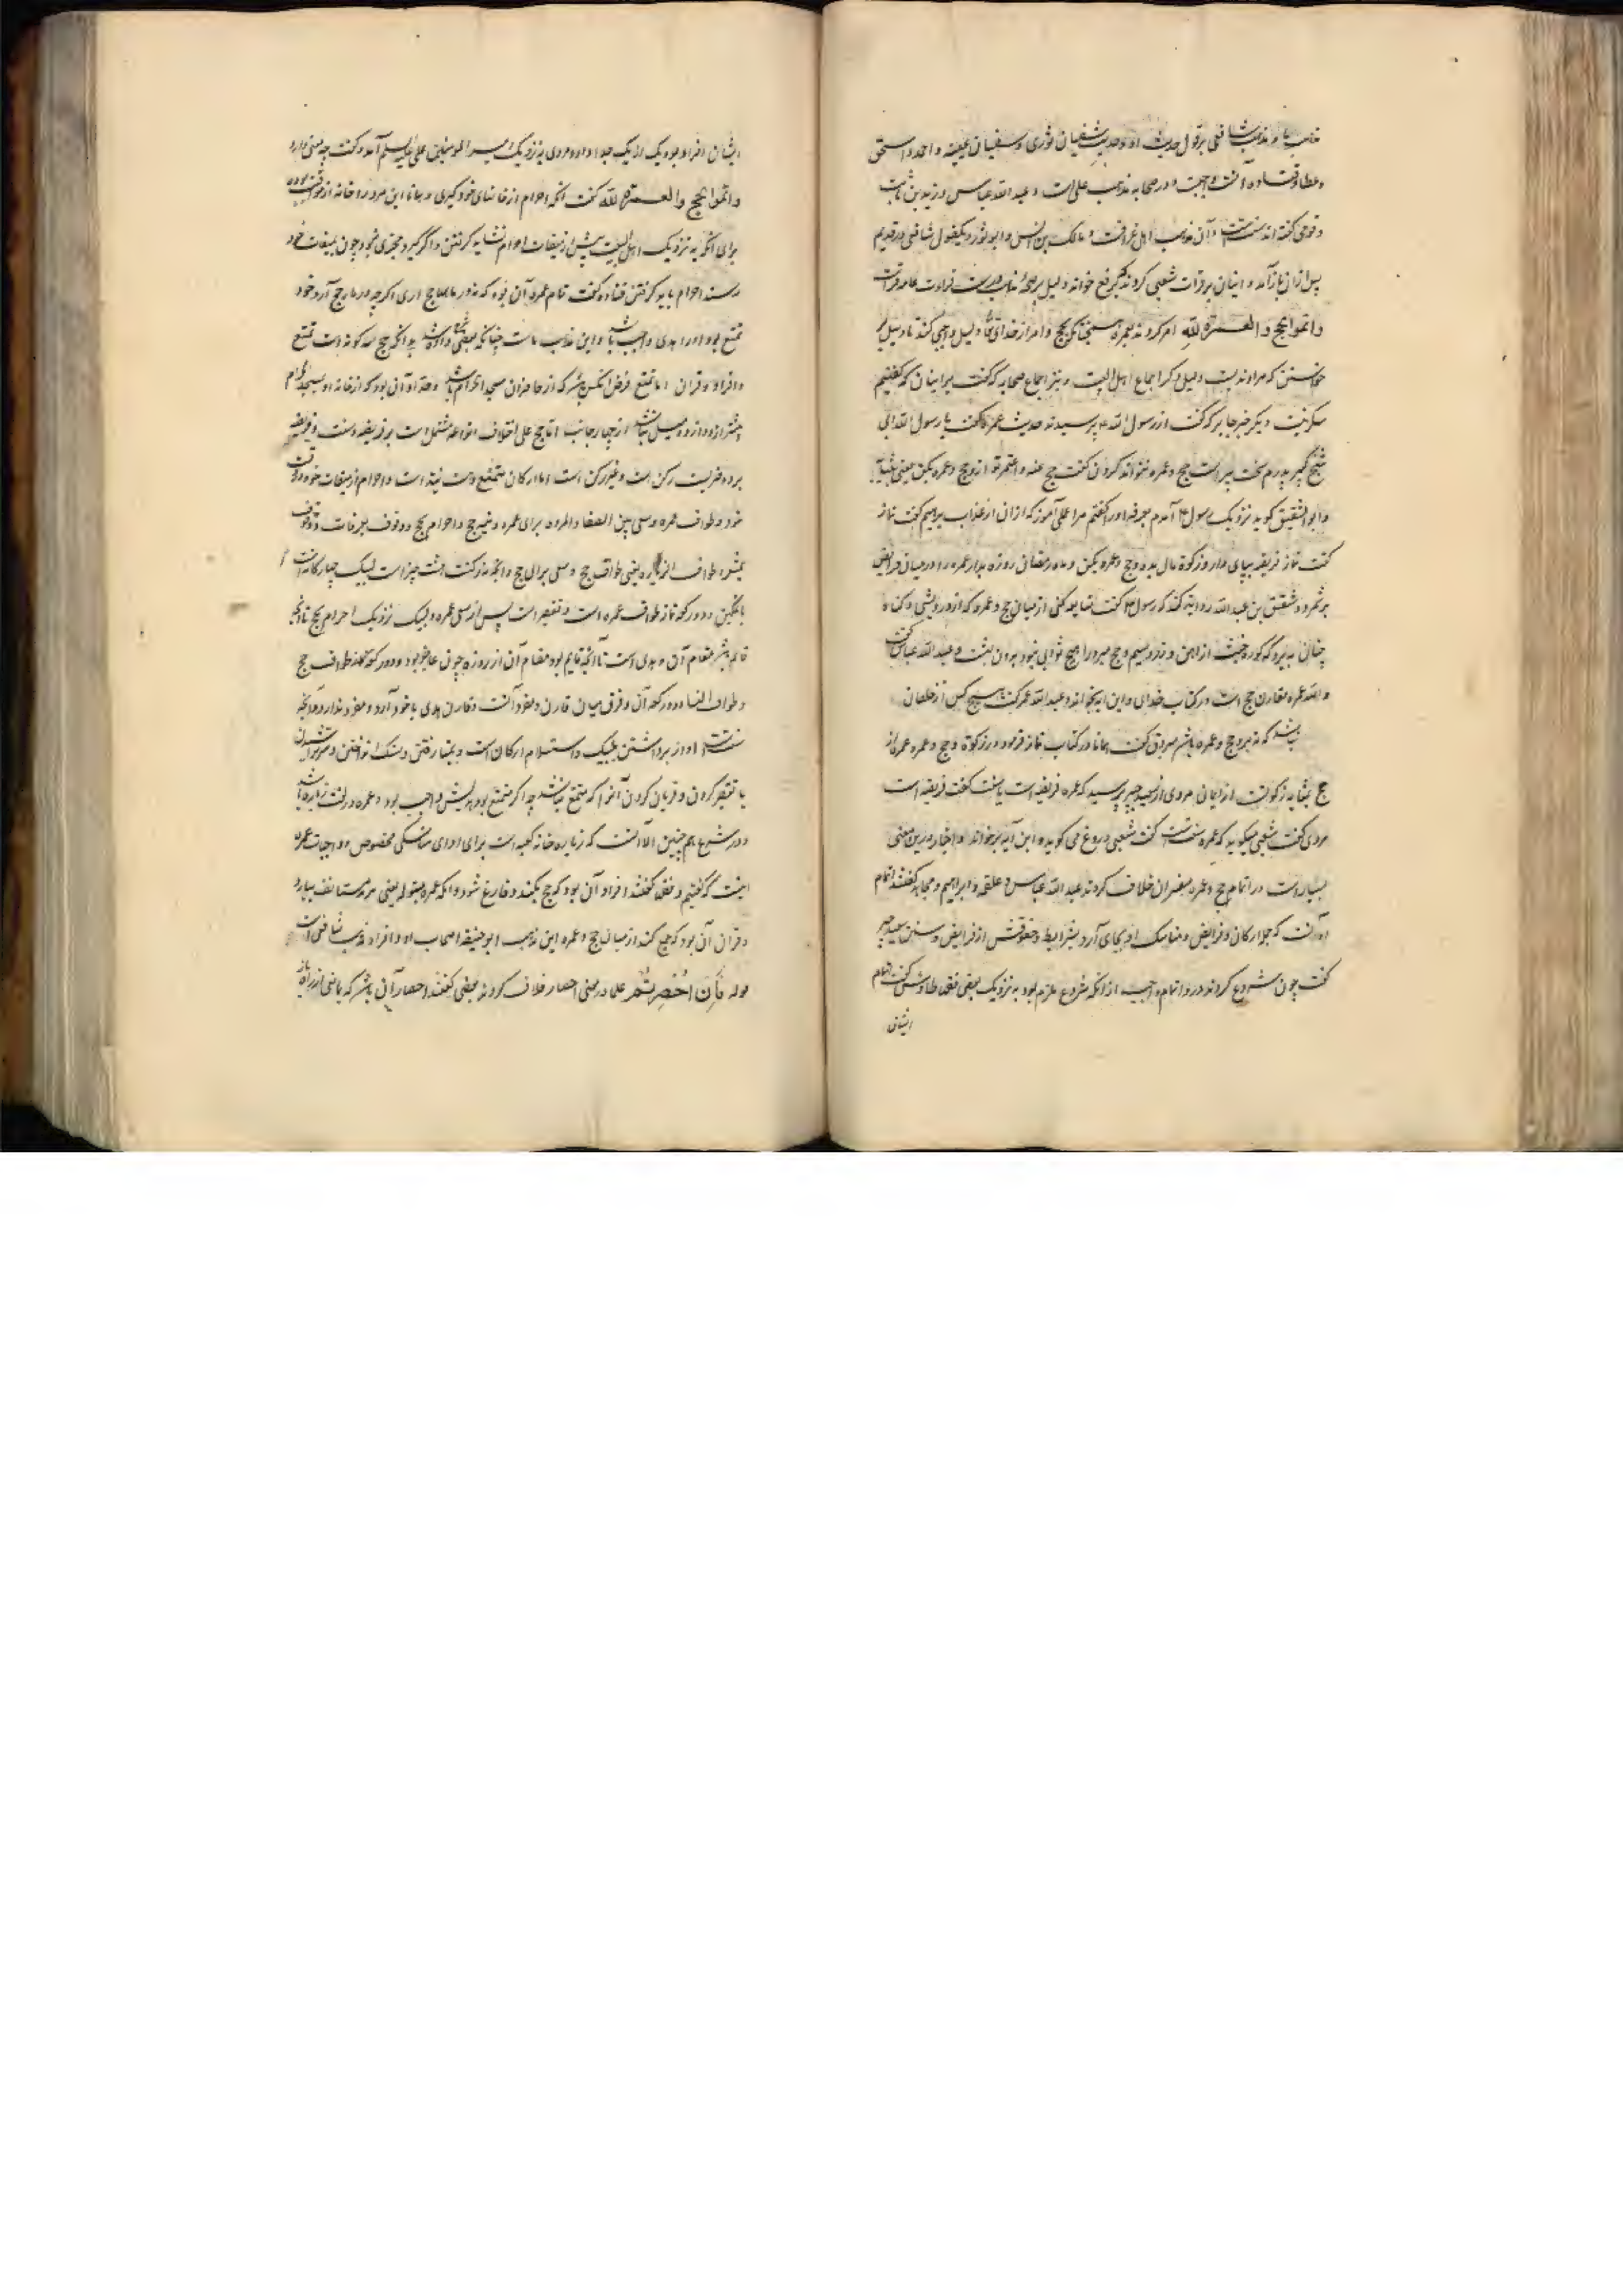 مذهب ما و مذهب شافعی بر قول حدیث او و حدیث سفیان ثوری و سفیان عیینه و احمد و اسحق
و عطا و قتاده آنست واجبست و در صحابه مذهب علی است و عبد الله عباس و زید بن ثابت
و قومی گفته اند سنتست و آن مذهب اهل عراقست و مالک بن انس و ابو ثور و یکقول شافعی در قدیم
پس ازان باز آمد و اینان بر قرات شعبی کردند که برفع خواند دلیل بر صحة مذهب درست قراءت عامه قراست
و اتموا الحج و العمرة لله امر کردند بعمره همچنانکه بحج و امر از خدای تعالی دلیل وجوب کند تا دلیل بر
خواستن که مراد ندبست دلیل دیگر اجماع اهل البیت و نیز اجماع صحابه که گفت برایشان که گفتیم
دیگر خبر جابر که گفت از رسول الله پرسیدند حدیث عمره گفت یا رسول الله ابی
شیخ کبیر پدرم سخت پیر است حج و عمره نتواند کردن گفت حج عنه و اعتمر تو ازو حج و عمره بکن یعنی
و ابو المنتفق گوید نزدیک رسول آمدم بعرفه او را گفتم مرا عملی آموز که ازان از عذاب برهیم گفت نماز
گفت نماز فریضه بپای دار و زکوة مال بده و حج و عمره بکن و ماه رمضان روزه بدار عمره را در میان فرایض
بر شمرد و شقیق بن عبد الله روایت کند که رسول گفت متابعه کنی از میان حج و عمره که از درویشی و گناه
چنان ببرد که کوره خبث از آهن و زر و سیم و حج مبرور را هیچ ثوابی نبود برون بهشت و عبد الله عباس گفت
و الله عمره مقارن حج است در کتاب خدای و این آیه بخواند و عبد الله عمر گفت هیچ کس از خلقان
نباشد که نه برو حج و عمره باشد مسروق گفت همانا در کتاب نماز فرمود و زکوة و حج و عمره و عمره از
حج بمثابه زکوتست از ایمان مردی از سعید جبیر پرسید که عمره فریضه است یا سنت گفت فریضه است
مردی گفت شعبی میگوید که عمره سنتست گفت شعبی دروغ می گوید و این آیه برخواند و اخبار درین معنی
بسیارست در اتمام حج و عمره مفسران خلاف کردند عبد الله عباس و علقمه و ابراهیم و مجاهد گفتند اتمام
او آنست که جمله ارکان و فرایض و مناسک او بجای آرد بشرایط و حقوقش از فرایض و سنن سعید جبیر
گفت چون شروع کردند درو اتمام واجبست از انکه شروع ملزم بود به نزدیک بعضی فقها طاوس گفت اتمام
ایشان
ایشان افراد بود یک از یک جدا و او مردی به نزدیک امیر المومنین علی علیه السلم آمد و گفت چه معنی دارد
و اتموا الحج و العمرة لله گفت انکه احرام از خانهای خود گیری و همانا این مرد را خانه از مواقیت بوده
برای انکه به نزدیک اهل البیت پیش از میقات احرام نشاید گرفتن و اگر گیرد مجزی نبود چون بمیقات خود
رسند احرام باید گرفتن قتاده گفت تمام عمره آن بود که نه در ماههای حج آری اگر چه در ماه حج آرد خود
تمتع بود او را هدی واجب باشد و این مذهب ماست چنانکه بعضی گفته شد بدانکه حج سه گونه است تمتع
و افراد و قران اما تمتع فرض انکس باشد که از حاضران مسجد الحرام نباشد و حد او آن بود که از خانه او بمسجد الحرام
بیشتر از دوازده میل باشد از چهار جانب اما حج علی اختلاف انواعه مشتمل است بر فریضه و سنت و فرایض
بر دو ضربست رکن است و غیر رکن است اما ارکان متمتع ده است نیت است و احرام از میقات خود در وقت
خود و طواف عمره و سعی بین الصفا و المروه برای عمره و نیت حج و احرام بحج و وقوف بعرفات و وقوف
بمشعر و طواف الزیاره یعنی طواف حج و سعی برای حج و آنچه نه رکنست هشت چیز است لبیک چهارگانه است
با تمکین و دو رکعة نماز طواف عمره است و تقصیر است پس از سعی عمره و لبیک نزدیک احرام بحج تا آنچه
قایم باشد مقام آن و هدی است تا آنچه قایم بود مقام آن از روزه چون عاجز بود و دو رکعة نماز طواف حج
و طواف النسا و دو رکعة آن و فرق میان قارن و مفرد آنست که قارن هدی با خود آرد و مفرد ندارد و آنچه
سنتست آواز برداشتن بلبیک و استلام ارکان است و بمنا رفتن و سنگ انداختن و سر تراشیدن
یا تقصیر کردن و قربان کردن آنرا که متمتع نباشد چه اگر متمتع بود هدیش واجب بود و عمره در لغت زیاره باشد
و در شرع هم چنین الا آنست که زیاره خانه کعبه است برای ادای مناسکی مخصوص و واجبات عمره
اینست که گفتیم و بعضی گفتند افراد آن بود که حج بکند و فارغ شود و انکه عمره بتوله یعنی مستانف بیارد
و قران آن بود که جمع کند از میان حج و عمره این مذهب ابو حنیفه و اصحاب او و افراد مذهب شافعی است
قوله فَأِن اُحْصِرتُم علما در معنی احصار خلاف کردند بعضی گفتند احصار آن باشد که مانعی از راه باز